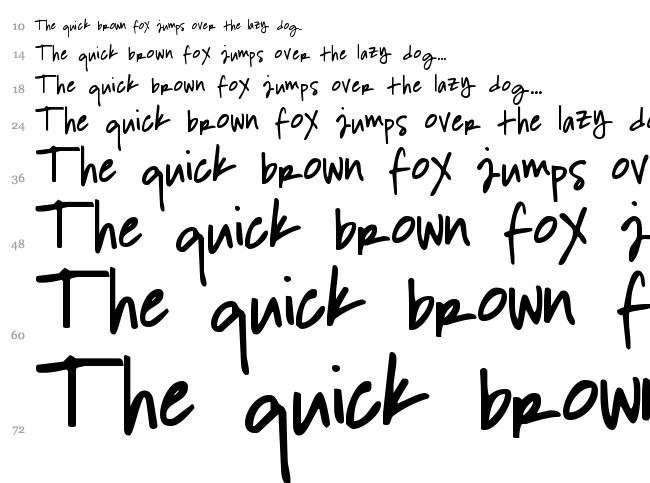 10 The quick brown fox jumps over the lazy dog.
14 The quick brown fox jumps over the lazy dog...
18 The quick brown fox jumps over the lazy dog...
24 The quick brown fox jumps over the lazy do
36 The quick brown fox jumps ov
48 The quick brown fox j
60 The quick brown f
72 The quick brown